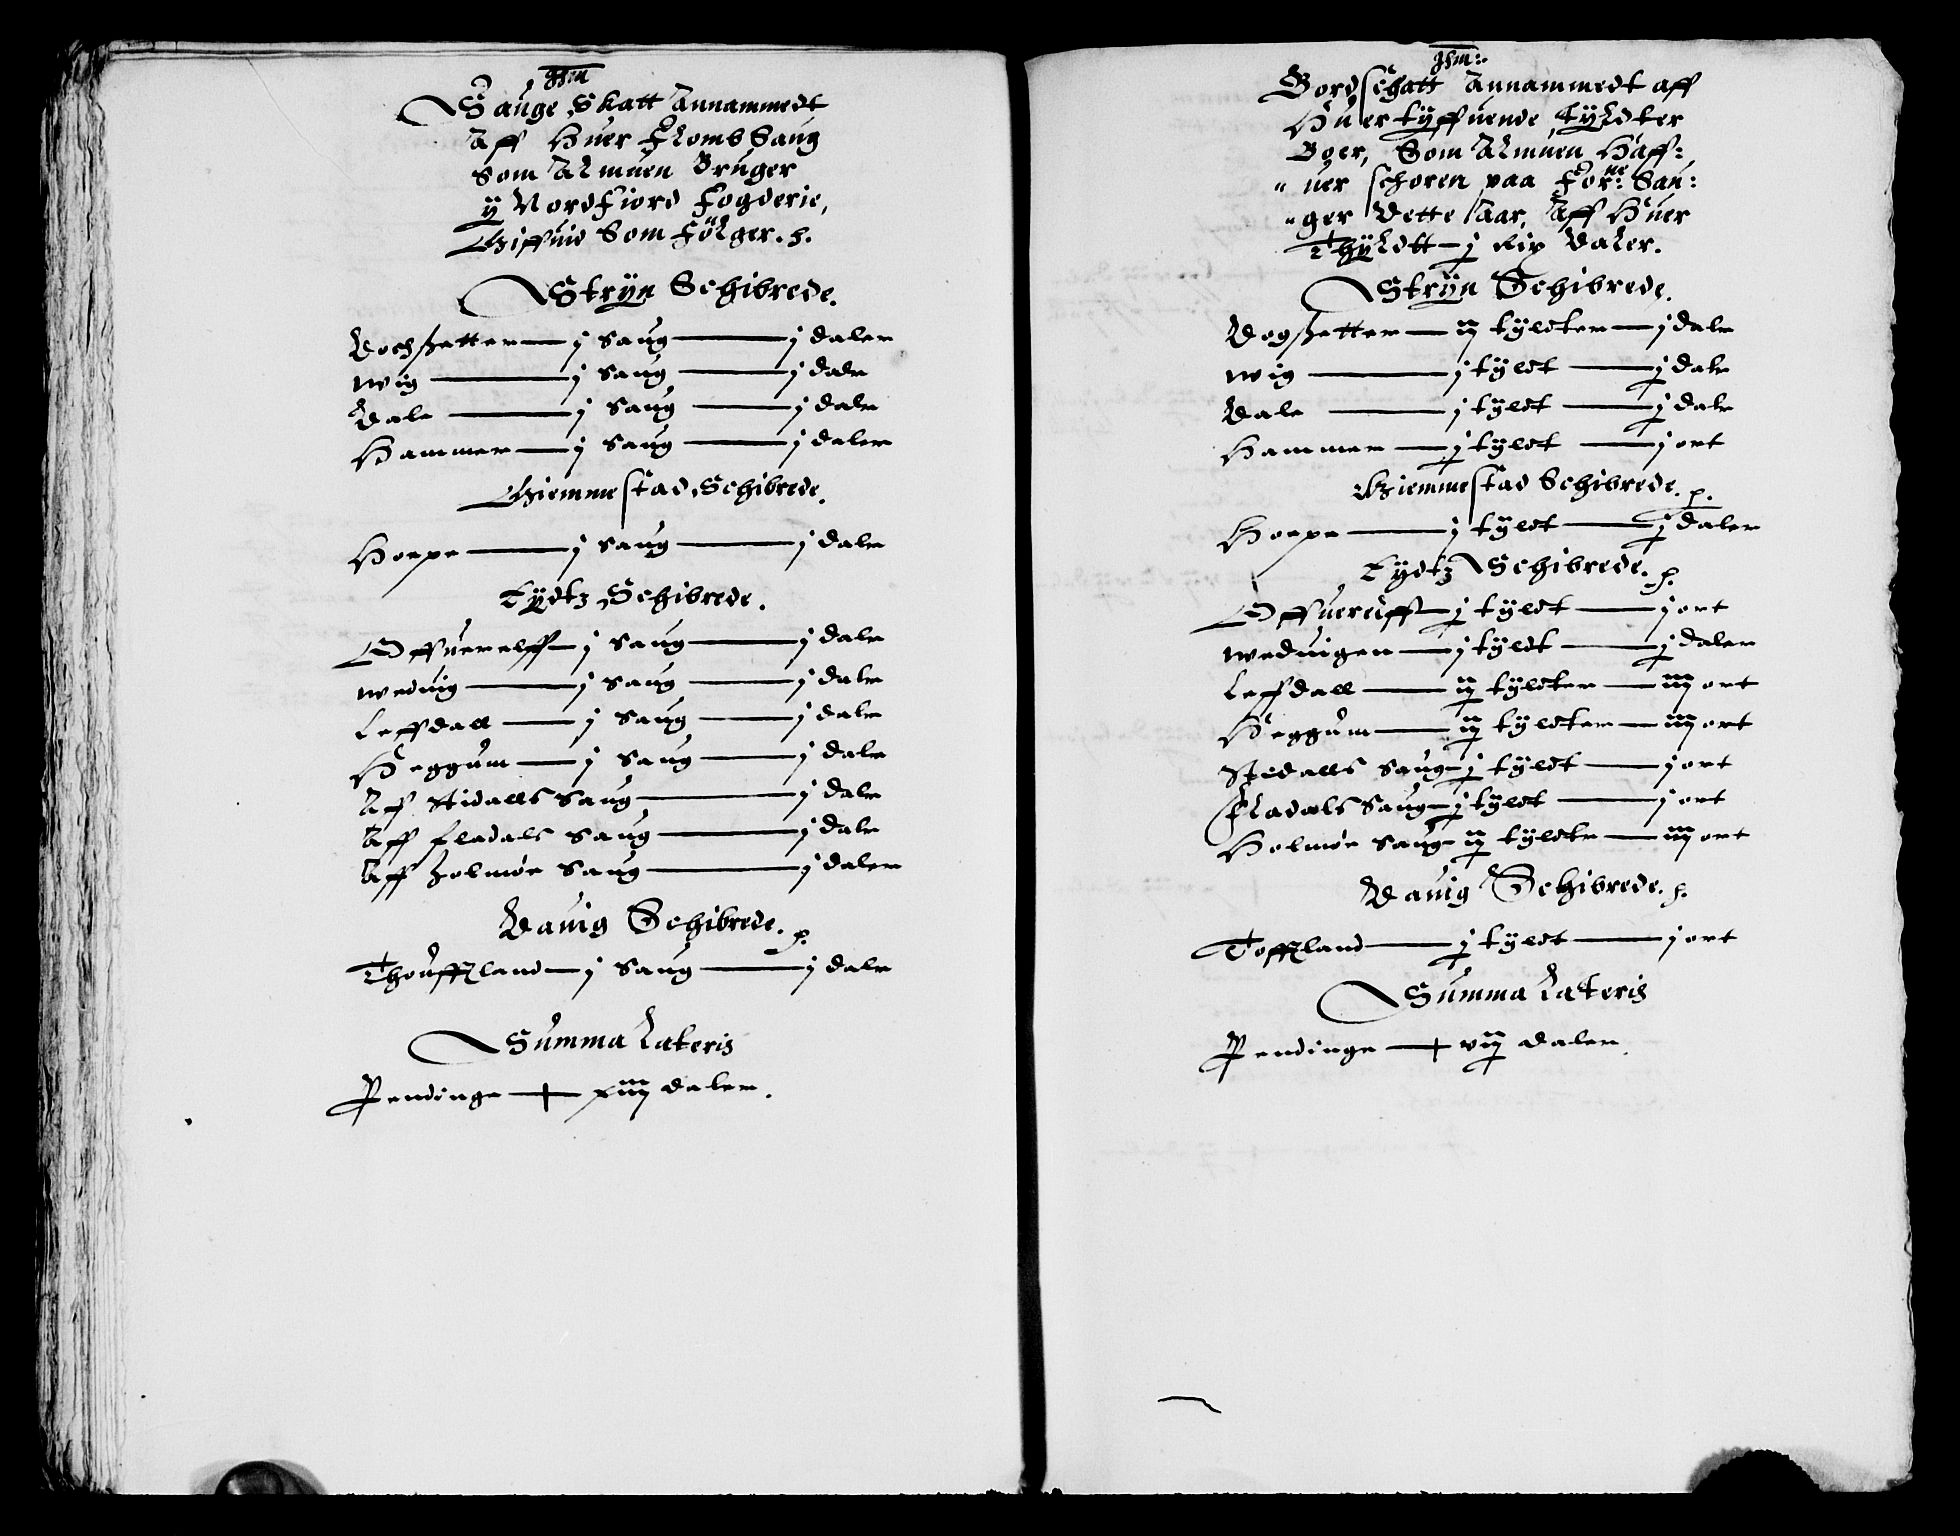 Sauge Skatt Annammedt
Aff Huer Flomb Saug
Som Almuen Bruger
ÿ Nordfiord Fogderie,
Giffuid Som Fölger.
Strÿn Schibrede.
Dochsetter — j saug — j daler
wig — j saug — j dalr
Dale — j saug — j dalr
Hammer — j saug — j daler
Giemmestad Schibrede.
Hoepe — j saug — j dalr
Eÿdtz Schibrede.
Offuerelff — j saug — j dalr
weduig — j saug — j dalr
Leffdall — j saug — j dalr
Heggum — j saug — j dalr
Aff Stidalls saug — j dalr
Aff fladals saug — j dalr
Aff holmöe saug — j daler
Dauig Schibrede.
Thouffland — j saug — j dalr
Summa Lateris
Pendinge — xiiij daler.
Bordschatt Annammedt aff
Huer tÿffuende Tÿldter
Boer, Som Almuen Haff:
uer schoren paa For:ne Sau:
ger dette Aar, Aff Huer
Thÿldtt — j Rix daler.
Strÿn Schibrede.
Dogsetter — ij tÿldter — j dalr
wig — j tÿldt — j dalr
Dale — j tÿldt — j dalr
Hammer — j tÿldt — j ort
Giemmestad Schibrede.
Hoepe — j tÿldt — j daler
Eÿdtz Schibrede.
Offuerelff — j tÿldt — j ort
weduigen — j tÿldt — j daler
Leffdall — ij tÿldter — iij ort
Heggum — ij tÿldter — iij ort
Stedalls saug — j tÿldt — j ort
Fladals saug — j tÿldt — j ort
Holmöe saug — ij tÿldtr — iij ort
Dauig Schibrede.
Toffland — j tÿldt — j ort
Summa Lateris
Pendinge — vij daler.